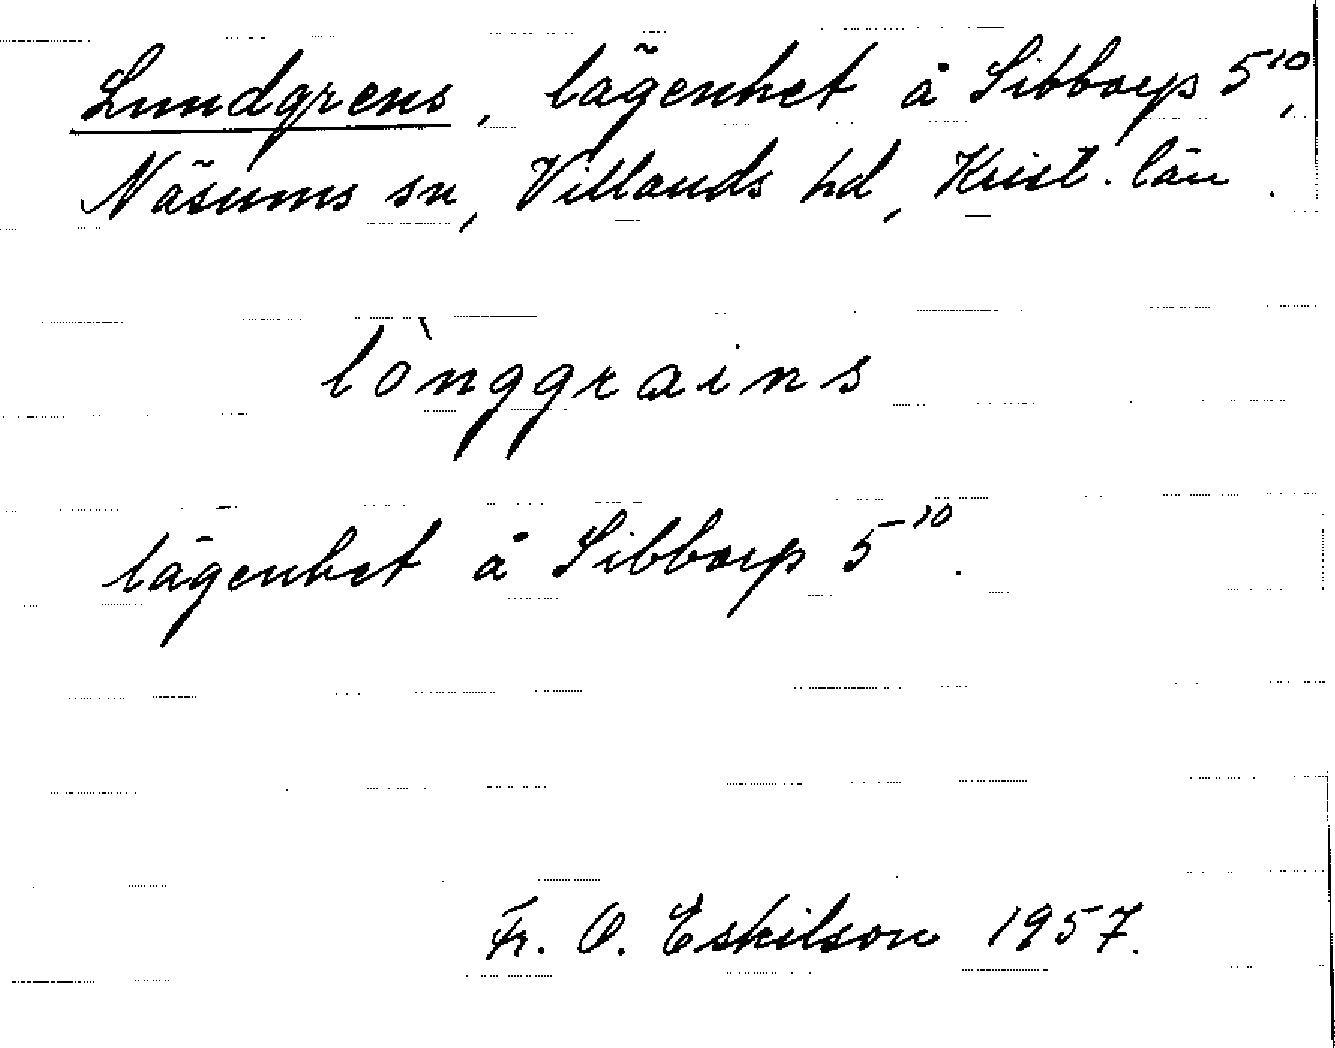 Lundgrens, lägenhet å Sibborp 5¹⁰,
Näsums sn, Villands hd, Krist. län.
lònggrains
lägenhet å Sibborp 5¹⁰.
Fr. O. Eskilson 1957.